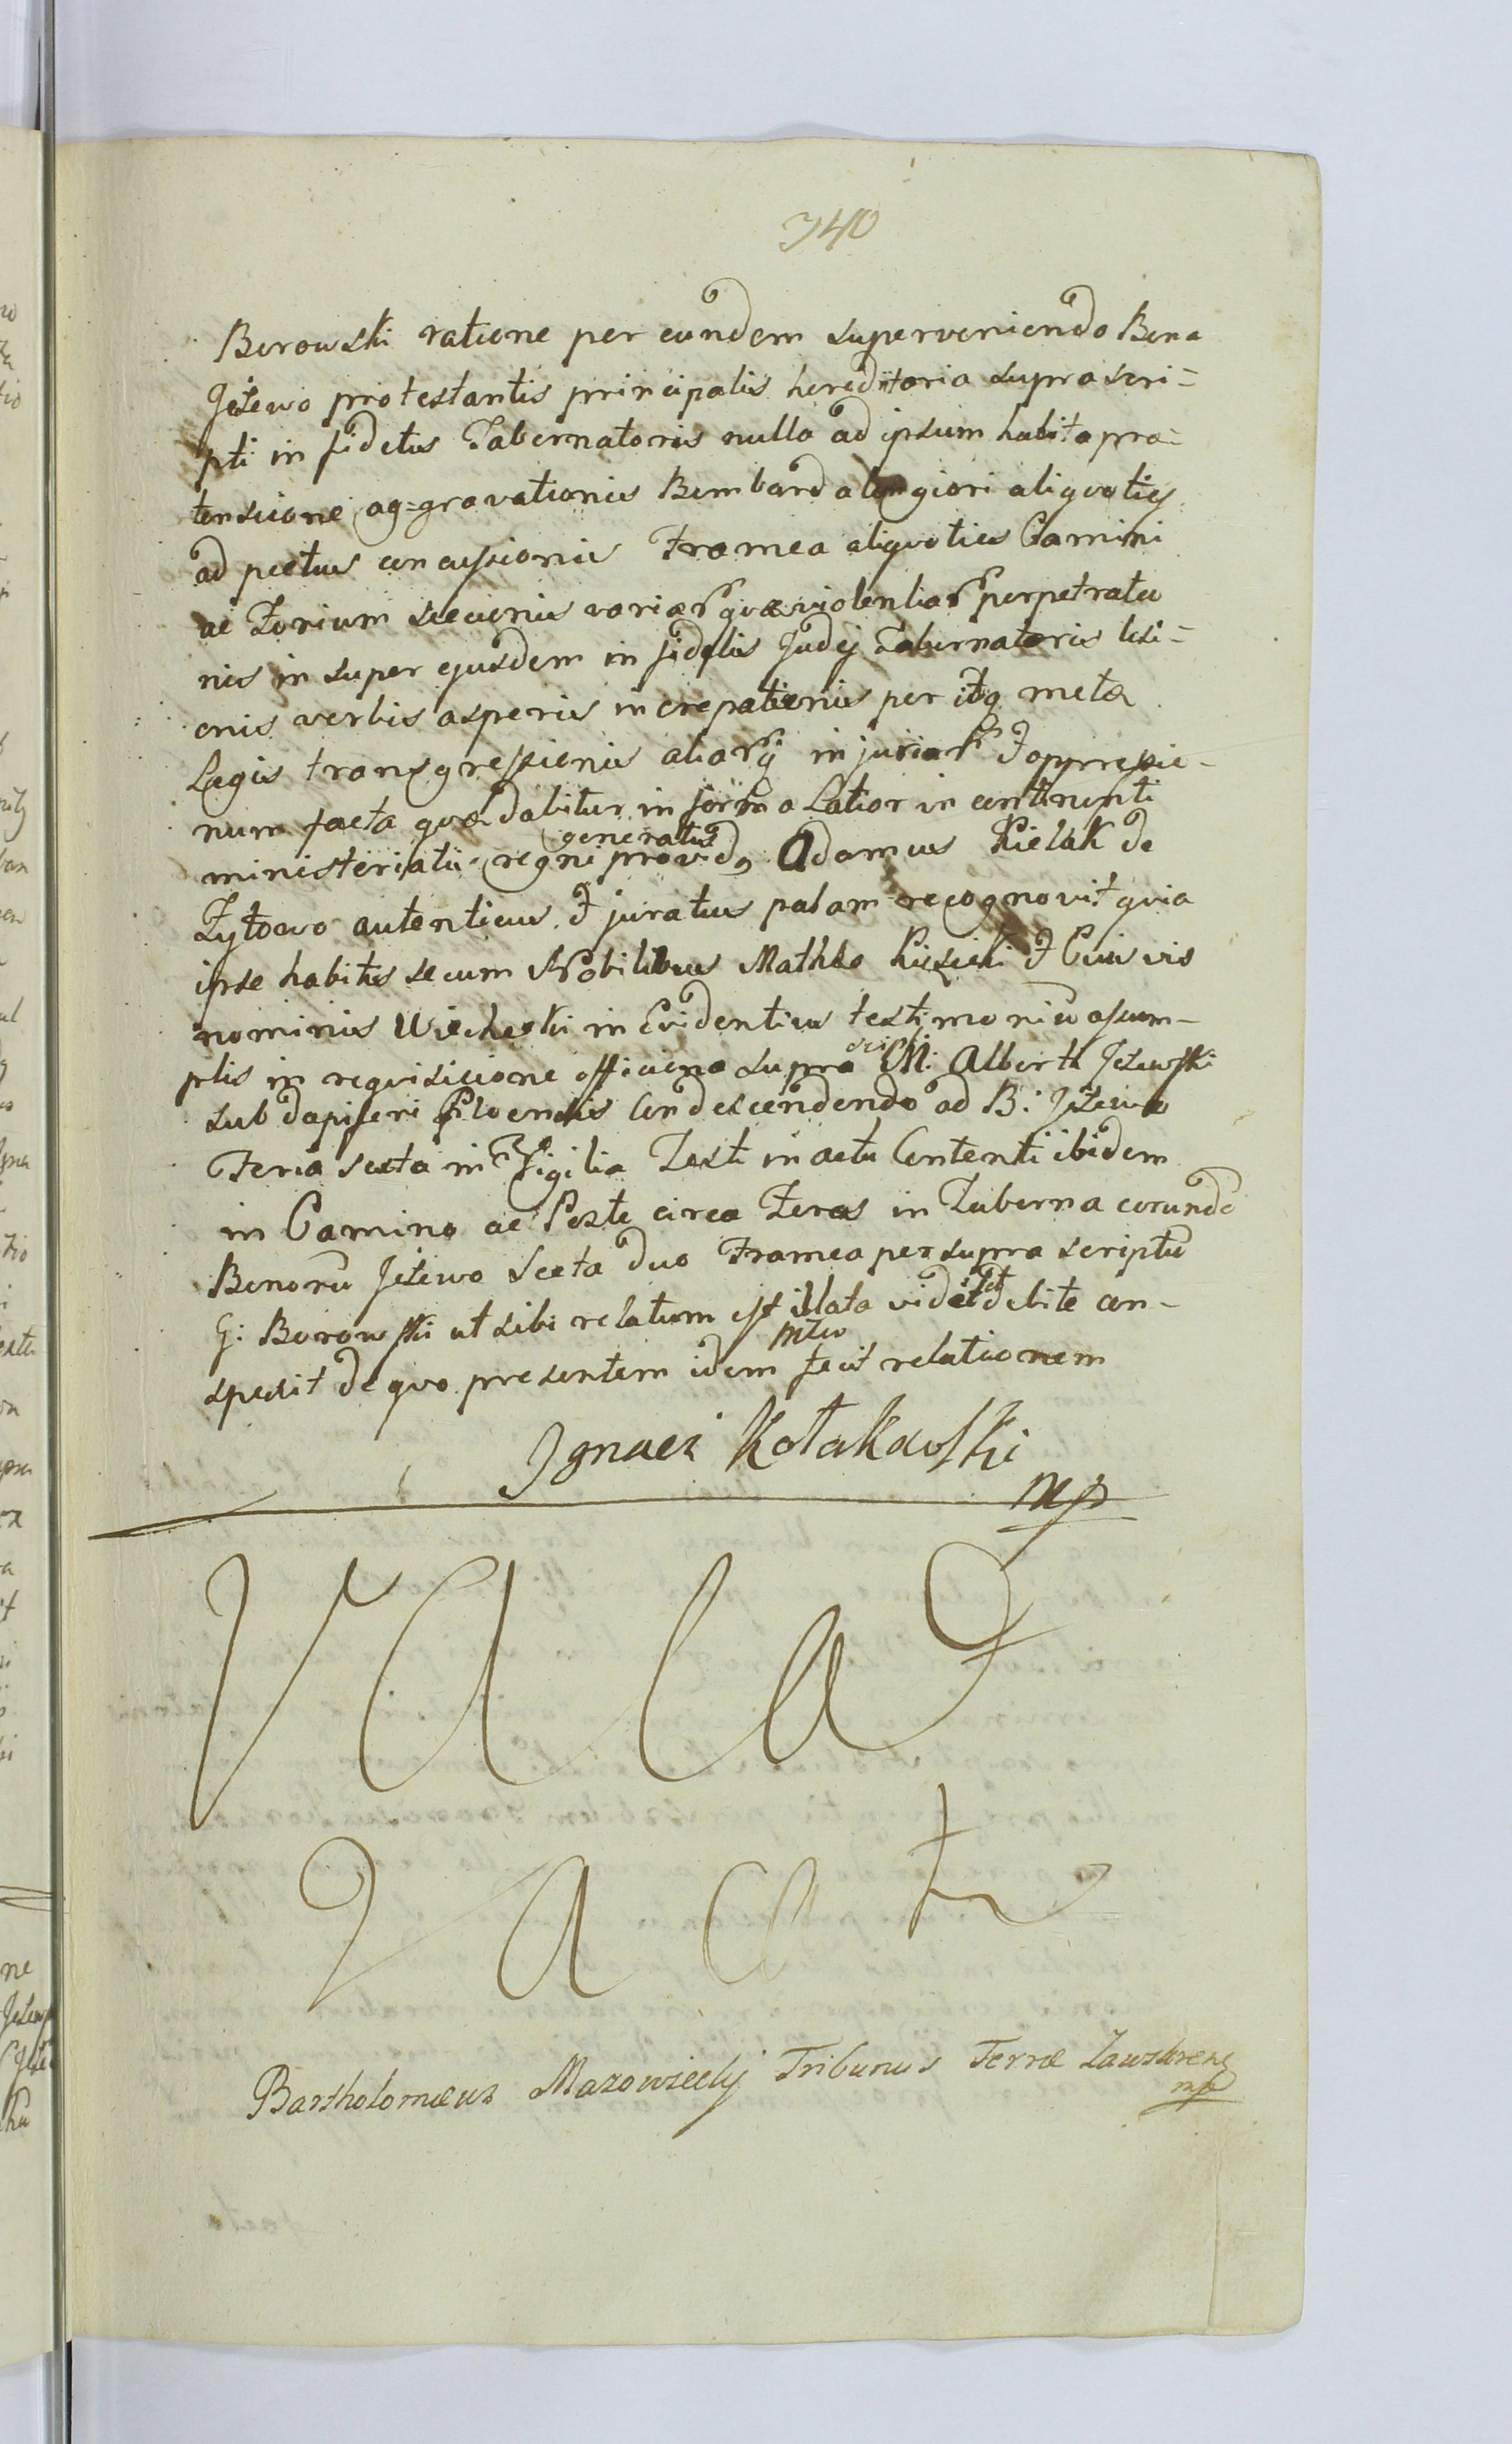 340
Borowski ratione per eundem superveniendo Bona
Jeżewo protestantis principalis hereditaria suprascri=
pti in fidelis Tabernatoris nulla ad ipsum habita præ=
tensione ag=gravationis Bombarda longiori aliquoties
ad pectus concussionis Framea aliquoties Camini
ac Forium secionis variar quæ violentiar perpetratio
nis in super ejusdem in fidelis Judej Tabernatoris lesi=
onis verbis asperis increpationis per idq metæ
Legis transgressionis aliarq injuriar & oppressio-
num facta quæ dabitur in forma Latior in continenti
ministerialis regni generalis provid Adamus Kielak de
Żytowo autenticus & juratus palam recognovit quia
ipse habitis secum Nobilibus Mathia & Cuiusvis
nominis Wiechecki in Evidentius testimoniũ assum-
ptis in requisicione officiosa supra scripti M: Alberti Jeżewski
sub dapiferi Plocensis Condescendendo ad B: Jeżewo
Feria sexta in Vigilia Festi in actu Contenti ibidem
in Camino ac Poste circa Foras in Taberna eorunde
Bonorũ Jeżewo Secta duo Framea per supra scriptũ
G: Borowski ut sibi relatum est illata vidit et debite con-
spexit de quo presentem idem mĩtis fecit relationem
Ignaci Kołakowski
mp
Vacat
Vacat
Bartholomæus Mazowiecky Tribunus Terræ Zawskrens
mp